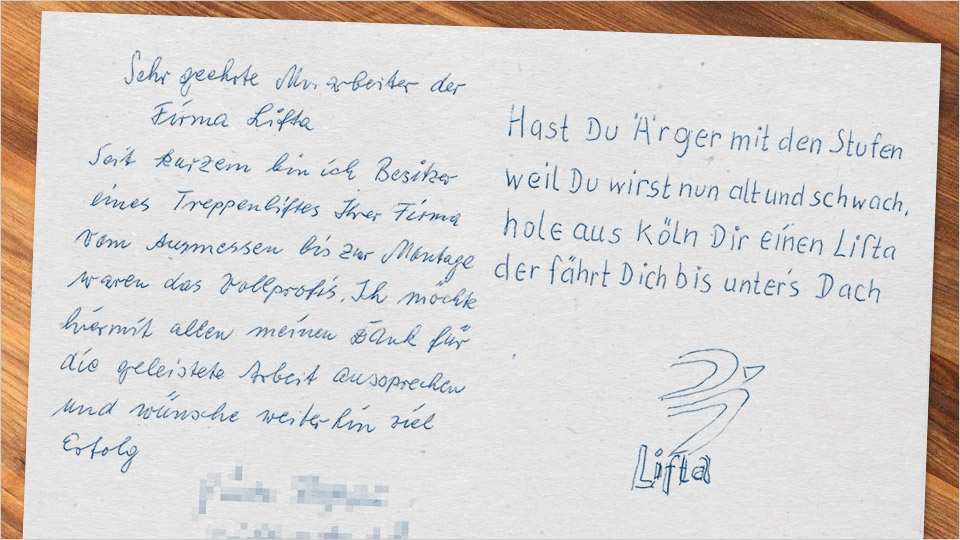 Sehr geehrte Mitarbeiter der
Firma Lifta
Seit kurzem bin ich Besitzer
eines Treppenliftes Ihrer Firma
vom Ausmessen bis zur Montage
waren das Vollprofis. Ich möchte
hiermit allen meinen Dank für
die geleistete Arbeit aussprechen
und wünsche weiterhin viel
Erfolg
Hast Du Ärger mit den Stufen
weil Du wirst nun alt und schwach,
hole aus Köln Dir einen Lifta
der fährt Dich bis unter's Dach
Lifta